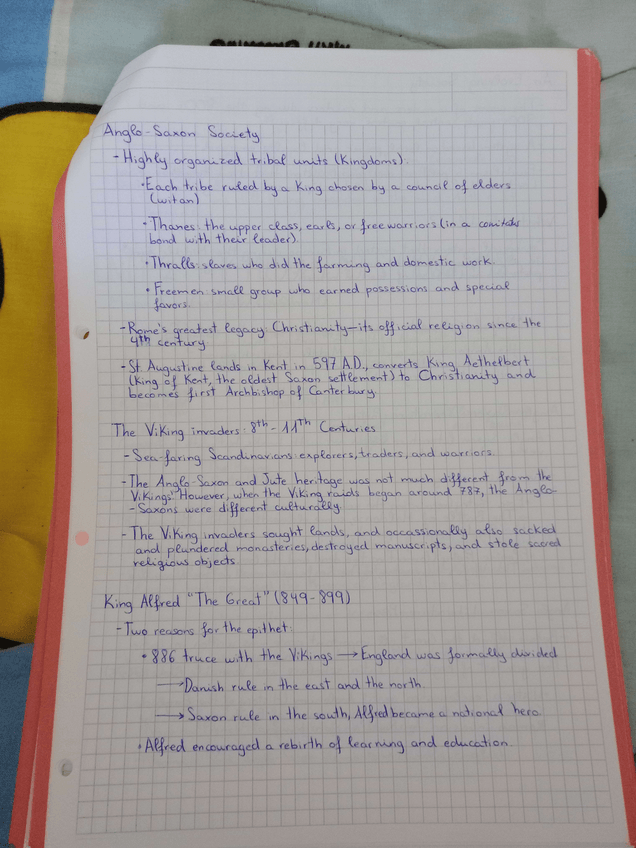 Anglo-Saxon Society
- Highly organized tribal units (Kingdoms).
• Each tribe ruled by a King chosen by a council of elders
(witan)
• Thanes: the upper class, earls, or free warriors (in a comitatus
bond with their leader).
• Thralls: slaves who did the farming and domestic work.
• Freemen: small group who earned possessions and special
favors.
- Rome's greatest legacy Christianity—its official religion since the
4th century
- St. Augustine lands in Kent in 597 A.D., converts King Aethelbert
(King of Kent, the oldest Saxon settlement) to Christianity and
becomes first Archbishop of Canterbury.
The Viking invaders: 8th - 11Th Centuries
- Sea-faring Scandinavians: explorers, traders, and warriors.
- The Anglo-Saxon and Jute heritage was not much different from the
Vikings'. However, when the Viking raids began around 787, the Anglo-
-Saxons were different culturally.
- The Viking invaders sought lands, and occassionally also sacked
and plundered monasteries, destroyed manuscripts, and stole sacred
religious objects.
King Alfred "The Great" (849-899)
- Two reasons for the epithet:
• 886 truce with the Vikings → England was formally divided
→ Danish rule in the east and the north.
→ Saxon rule in the south, Alfred became a national hero.
• Alfred encouraged a rebirth of learning and education.